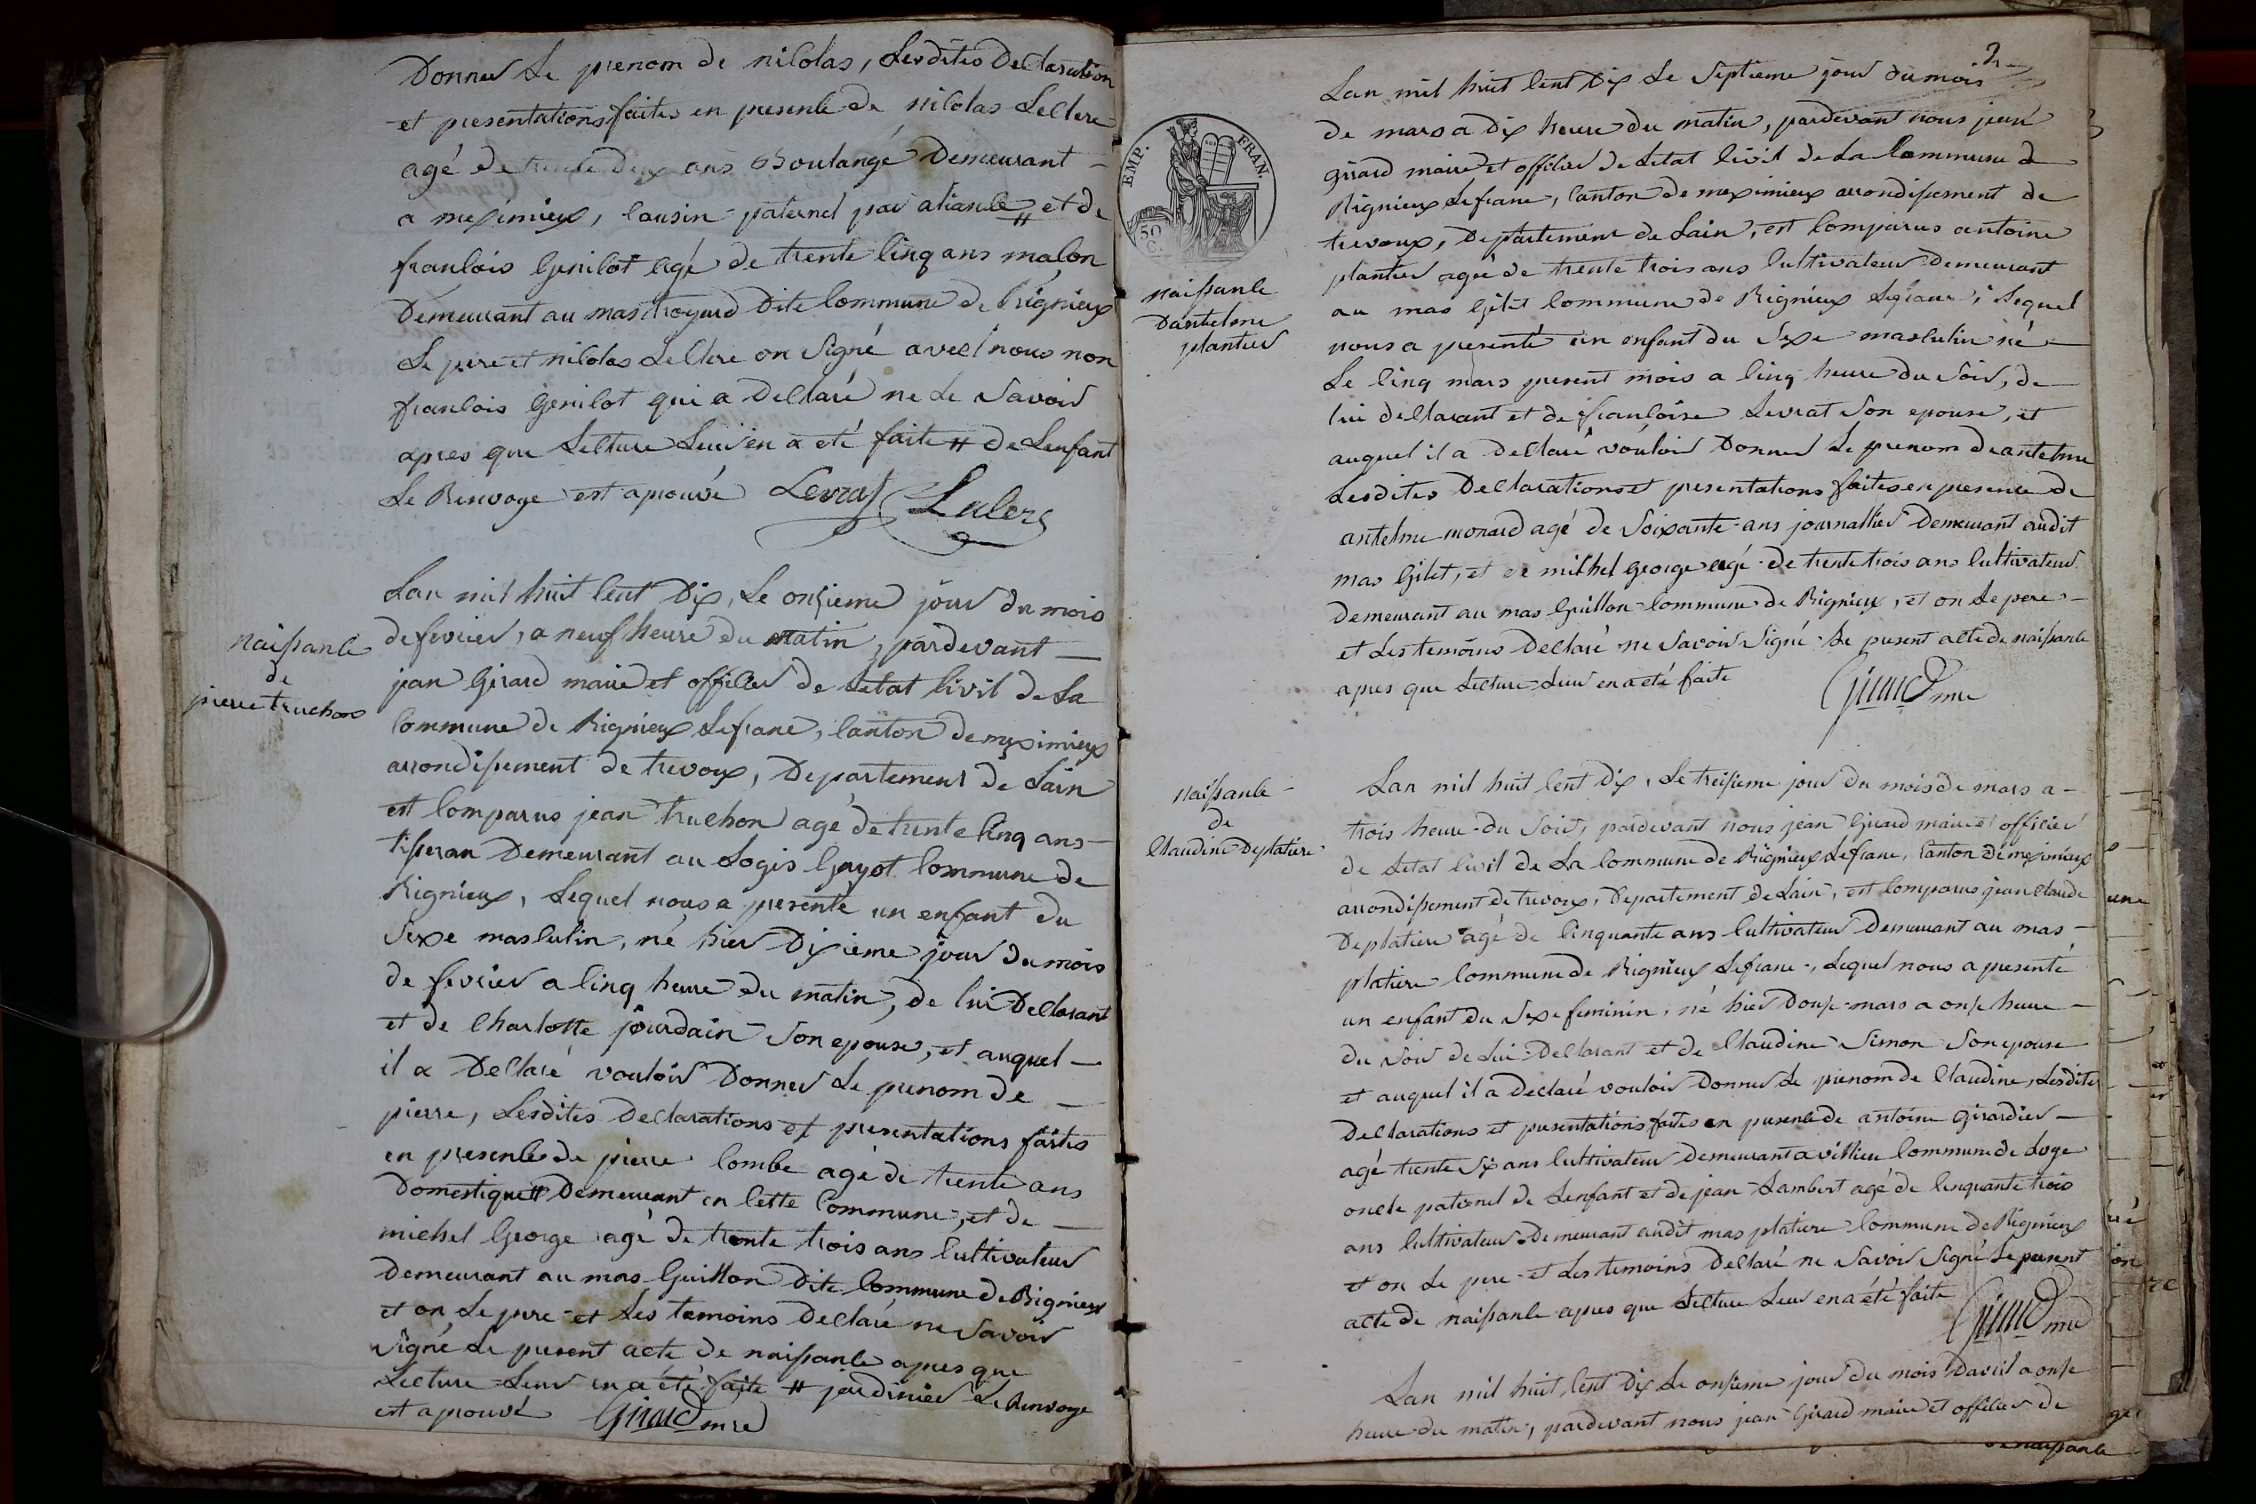 Donner Le prenom de nicolas, Lesdites Declaration
et presentations faites en presence de nicolas Leclerc
agé de trente deux ans Boulangé Demeurant
a meximieux, cousin paternel par aliance # et de
francois Genilot agé de trente cinq ans maçon
Demeurant au mas troyard Dite Commune de Rignieux
Le pere et nicolas Leclere on Signé avec nous non
francois Genilot qui a Declaré ne Le Savoir
apres que Lecture Leur en a eté faite # de Lenfant
Le Renvoye est aprouvé Levrat Leclerc
naissance
de
pierre truchon
Lan mil huit Cent Dix, Le onzieme jour du mois
de fevrier, a neuf heure du matin, pardevant
jean Girard maire et officier de Letat Civil de La
Commune de Rignieux Lefranc, Canton de meximieux
arrondissement de trevoux, Departement de Lain
est Comparus jean truchon agé de trente Cinq ans
tisseran Demeurant au Logis Guyot Commune de
Rignieux, Lequel nous a presenté un enfant du
Sexe masculin, né hier Dixieme jour du mois
de fevrier a Cinq heure du matin, de lui Declarant
et de Charlotte jourdain Son epouse, et auquel
il a Declaré vouloir Donner Le prenom de
pierre, Lesdites Declarations et presentations faites
en presence de pierre Combe agé de trente ans
Domestique # Demeurant en Cette Commune, et de
michel George agé de trente trois ans Cultivateur
Demeurant au mas Guillon Dite Commune de Rignieux
et on Le pere et Les temoins Declaré ne Savoir
Signé Le present acte de naissance apres que
Lecture Leur en a eté faite # jardinier Le Renvoye
est aprouvé Girard mre
2
EMP. FRAN.
50
C.
naissance
Dantelme
plantier
Lan mil huit Cent Dix Le Septieme jour du mois
de mars a Dix heure du matin, pardevant nous jean
Girard maire et officier de Letat Civil de La Commune de
Rignieux Lefranc, Canton de meximieux arrondissement de
trevoux, Departement de Lain, est Comparus antoine
plantier agé de trente trois ans Cultivateur Demeurant
au mas Gilet Commune de Rignieux Lefranc, Lequel
nous a presenté un enfant du Sexe masculin né
Le Cinq mars present mois a Cinq heure du Soir, de
lui declarant et de francoise Levrat Son epouse, et
auquel il a Declaré vouloir Donner Le prenom de antelme
Lesdites Declarations et presentations faites en presence de
antelme monard agé de Soixante ans journallier Demeurant audit
mas Gilet, et de michel George agé de trente trois ans Cultivateur
Demeurant au mas Guillon Commune de Rignieux, et on Le pere
et Les temoins Declaré ne Savoir Signé Le present acte de naissance
apres que Lecture Leur en a eté faite
Girard mre
naissance
de
Claudine Deplatiere
Lan mil huit Cent Dix, Le treisieme jour du mois de mars a
trois heure du Soir, pardevant nous jean Girard maire et officier
de Letat Civil de La Commune de Rignieux Lefranc, Canton de meximieux
arrondissement de trevoux, Departement de Lain, est Comparus jean Claude
Deplatiere agé de Cinquante ans Cultivateur Demeurant au mas
platiere Commune de Rignieux Lefranc, Lequel nous a presenté
un enfant du Sexe feminin, né hier Douse mars a onse heure
du Soir de Lui Declarant et de Claudine Simon Son epouse
et auquel il a Declaré vouloir Donner Le prenom de Claudine, Lesdites
Declarations et presentations faites en presence de antoine Girardier
agé trente Six ans Cultivateur Demeurant a villieu Commune de Loye
oncle paternel de Lenfant et de jean Lambert agé de Cinquante trois
ans Cultivateur Demeurant audit mas platiere Commune de Rignieux
et on Le pere et Les temoins Declaré ne Savoir Signé Le present
acte de naissance apres que Lecture Leur en a eté faite
Girard mre
Lan mil huit Cent Dix Le onsieme jour du mois Davril a onse
heure du matin, pardevant nous jean Girard maire et officier de